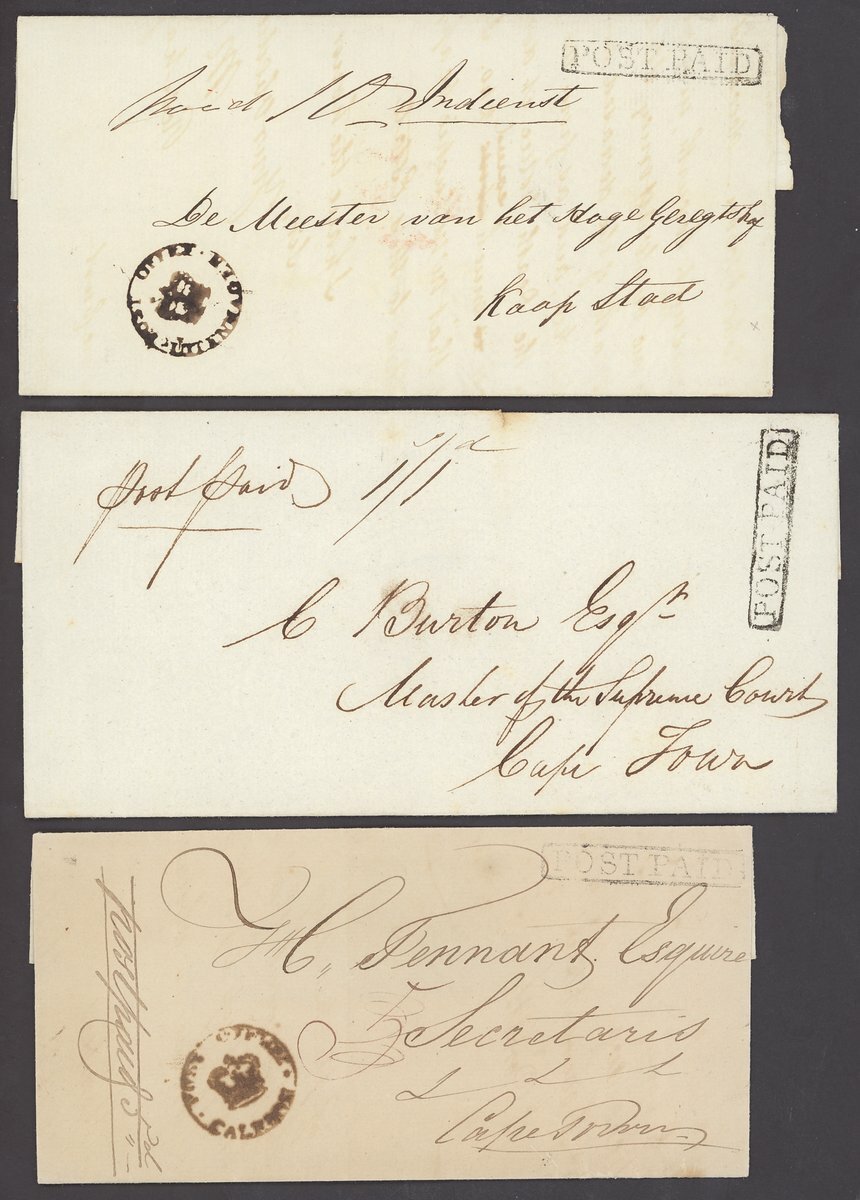 POST PAID
paid 10 Indienst
De Meester van het Hoge Geregtshof
Kaap Stad
POST OFFICE
post paid 1/1d
POST PAID
C Burton Esqr
Master of the Supreme Court
Cape Town
POST PAID
H. Tennant Esquire
Secretaris
Cape Town
post paid 5d
POST OFFICE CALEDON